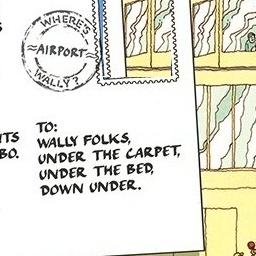 WHERE'S
≈AIRPORT≈
WALLY?
TO:
WALLY FOLKS,
UNDER THE CARPET,
UNDER THE BED,
DOWN UNDER.
ITS
BO.